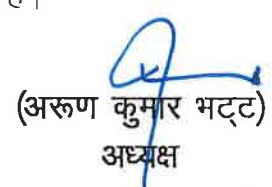 है।
(अरूण कुमार भट्ट)
अध्यक्ष